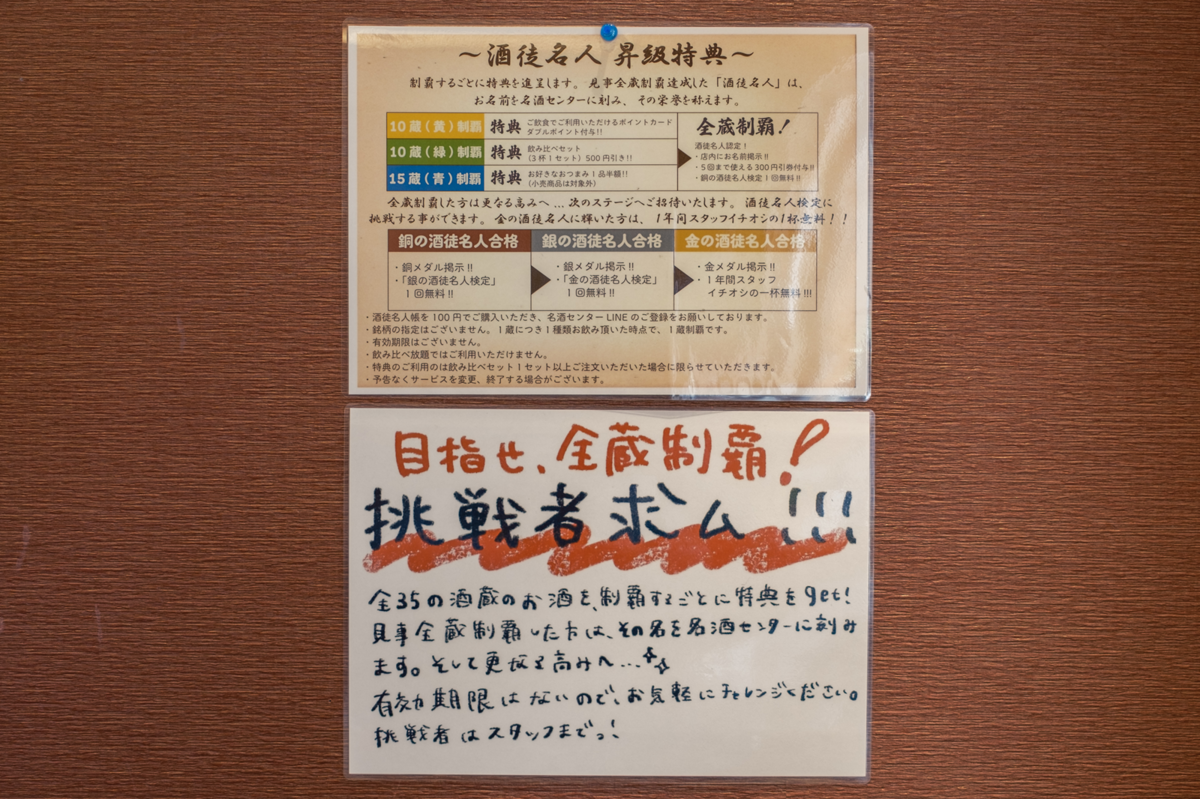 ～酒徒名人 昇級特典～
制覇するごとに特典を進呈します。見事全蔵制覇達成した「酒徒名人」は、
お名前を名酒センターに刻み、その栄誉を称えます。
10蔵(黄)制覇 特典 ご飲食でご利用いただけるポイントカード
ダブルポイント付与!!
10蔵(緑)制覇 特典 飲み比べセット
(3杯1セット)500円引き!!
15蔵(青)制覇 特典 お好きなおつまみ1品半額!!
(小売商品は対象外)
全蔵制覇!
酒徒名人認定!
・店内にお名前掲示!!
・5回まで使える300円引券付与!!
・銅の酒徒名人検定1回無料!!
全蔵制覇した方は更なる高みへ…次のステージへご招待いたします。酒徒名人検定に
挑戦する事ができます。金の酒徒名人に輝いた方は、1年間スタッフイチオシの1杯無料!!
銅の酒徒名人合格
・銅メダル掲示!!
・「銀の酒徒名人検定」
1回無料!!
銀の酒徒名人合格
・銀メダル掲示!!
・「金の酒徒名人検定」
1回無料!!
金の酒徒名人合格
・金メダル掲示!!
・1年間スタッフ
イチオシの一杯無料!!!
・酒徒名人帳を100円でご購入いただき、名酒センターLINEのご登録をお願いしております。
・銘柄の指定はございません。1蔵につき1種類お飲み頂いた時点で、1蔵制覇です。
・有効期限はございません。
・飲み比べ放題ではご利用いただけません。
・特典のご利用のは飲み比べセット1セット以上ご注文いただいた場合に限らせていただきます。
・予告なくサービスを変更、終了する場合がございます。
目指せ、全蔵制覇!
挑戦者求ム!!!
全35の酒蔵のお酒を、制覇するごとに特典をget!
見事全蔵制覇した方は、その名を名酒センターに刻み
ます。そして更なる高みへ…
有効期限はないので、お気軽にチャレンジください。
挑戦者はスタッフまでっ!